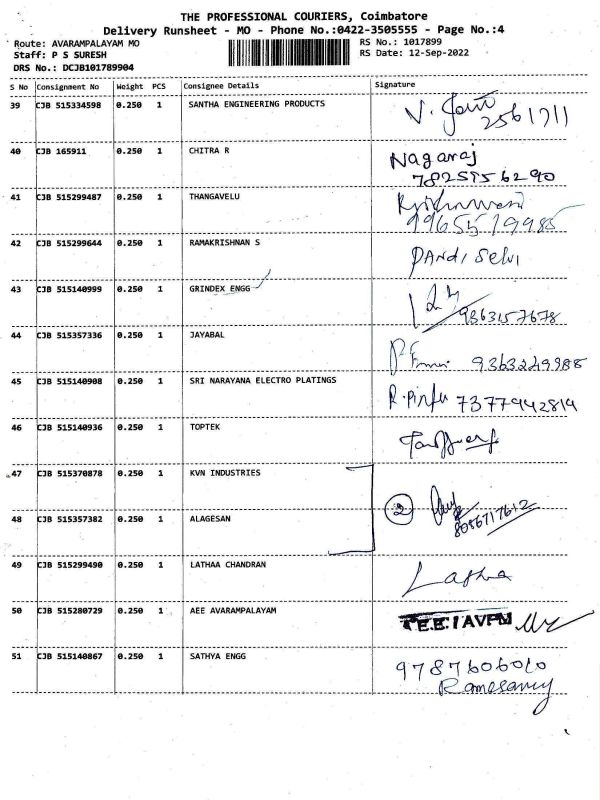 THE PROFESSIONAL COURIERS, Coimbatore
Delivery Runsheet - MO - Phone No.:0422-3505555 - Page No.:4
Route: AVARAMPALAYAM MO RS No.: 1017899
Staff: P S SURESH RS Date: 12-Sep-2022
DRS No.: DCJB101789904
S No Consignment No Weight PCS Consignee Details Signature
39 CJB 515334598 0.250 1 SANTHA ENGINEERING PRODUCTS
2561711
40 CJB 165911 0.250 1 CHITRA R Nagaraj
41 CJB 515299487 0.250 1 THANGAVELU
9965519985
42 CJB 515299644 0.250 1 RAMAKRISHNAN S PANdi selvi
43 CJB 515140999 0.250 1 GRINDEX ENGG
9363157678
44 CJB 515357336 0.250 1 JAYABAL
9363249988
45 CJB 515140908 0.250 1 SRI NARAYANA ELECTRO PLATINGS
7377942814
46 CJB 515140936 0.250 1 TOPTEK
47 CJB 515370878 0.250 1 KVN INDUSTRIES
2
8056717612
48 CJB 515357382 0.250 1 ALAGESAN
49 CJB 515299490 0.250 1 LATHAA CHANDRAN Latha
50 CJB 515280729 0.250 1 AEE AVARAMPALAYAM
51 CJB 515140867 0.250 1 SATHYA ENGG 9787606010
Ramesamy